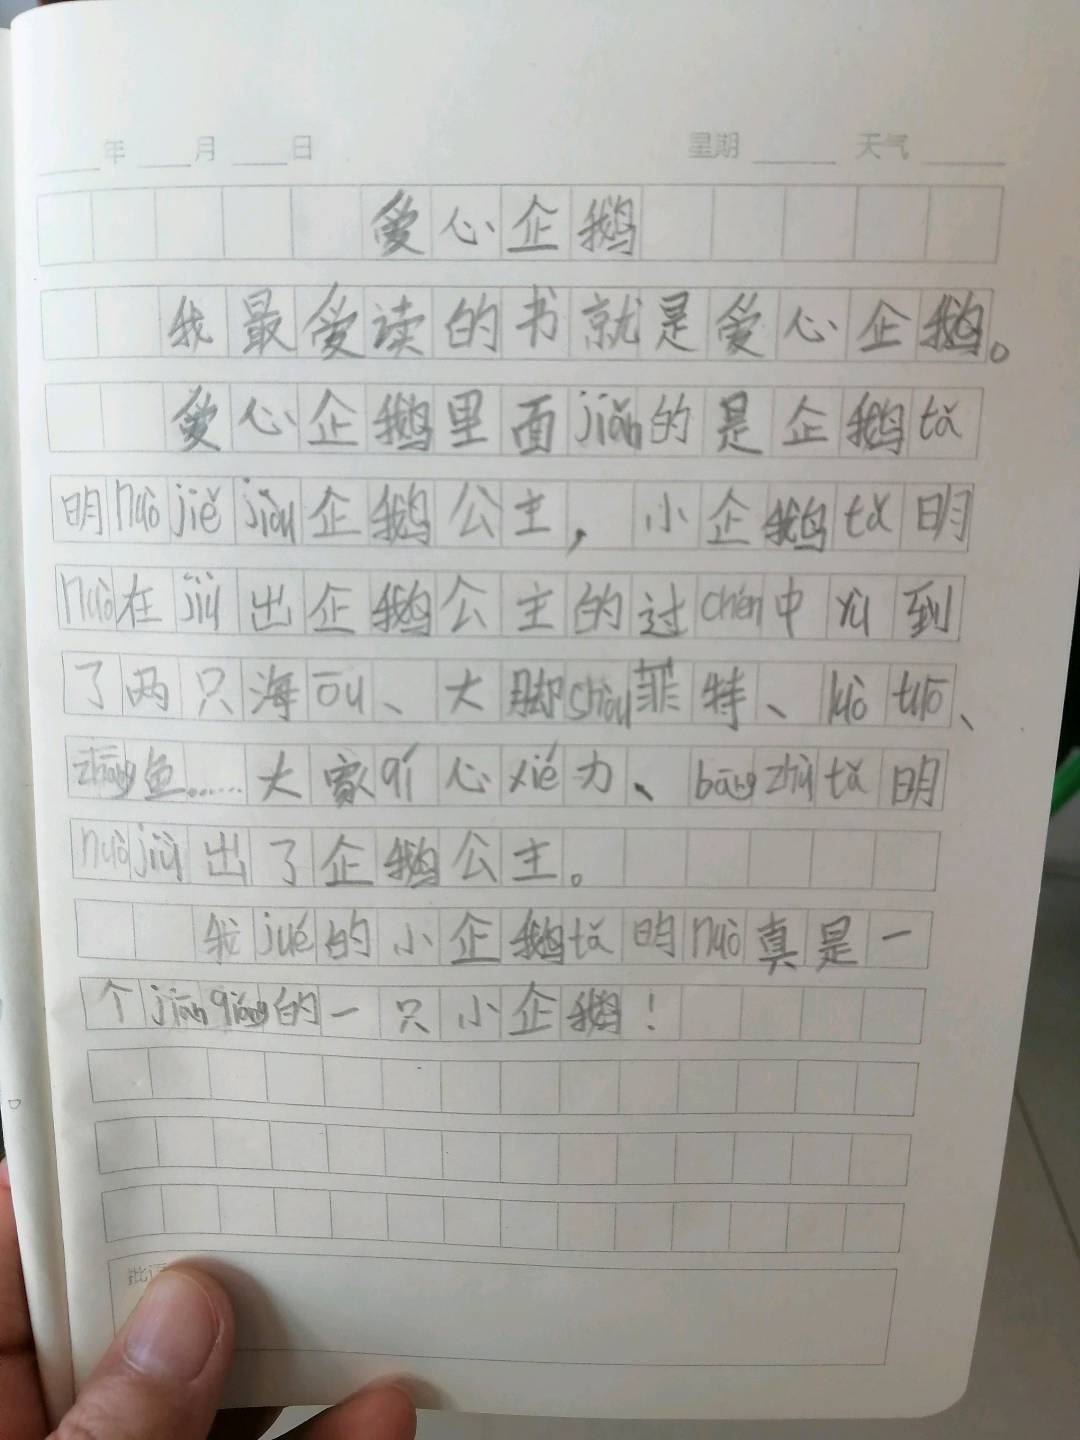 年 月 日 星期 天气
爱心企鹅
我最爱读的书就是爱心企鹅。
爱心企鹅里面jiǎn的是企鹅tǎ
明nuò jiě jiòu企鹅公主，小企鹅tǎ明
nuò在jiù出企鹅公主的过chén中yù到
了两只海ōu、大脚shòu菲特、luò tuō、
zhāng鱼……大家qí心xié力、bāng zhù tǎ明
nuò jiù出了企鹅公主。
我jué的小企鹅tǎ明nuò真是一
个jiān qiáng的一只小企鹅！
批语